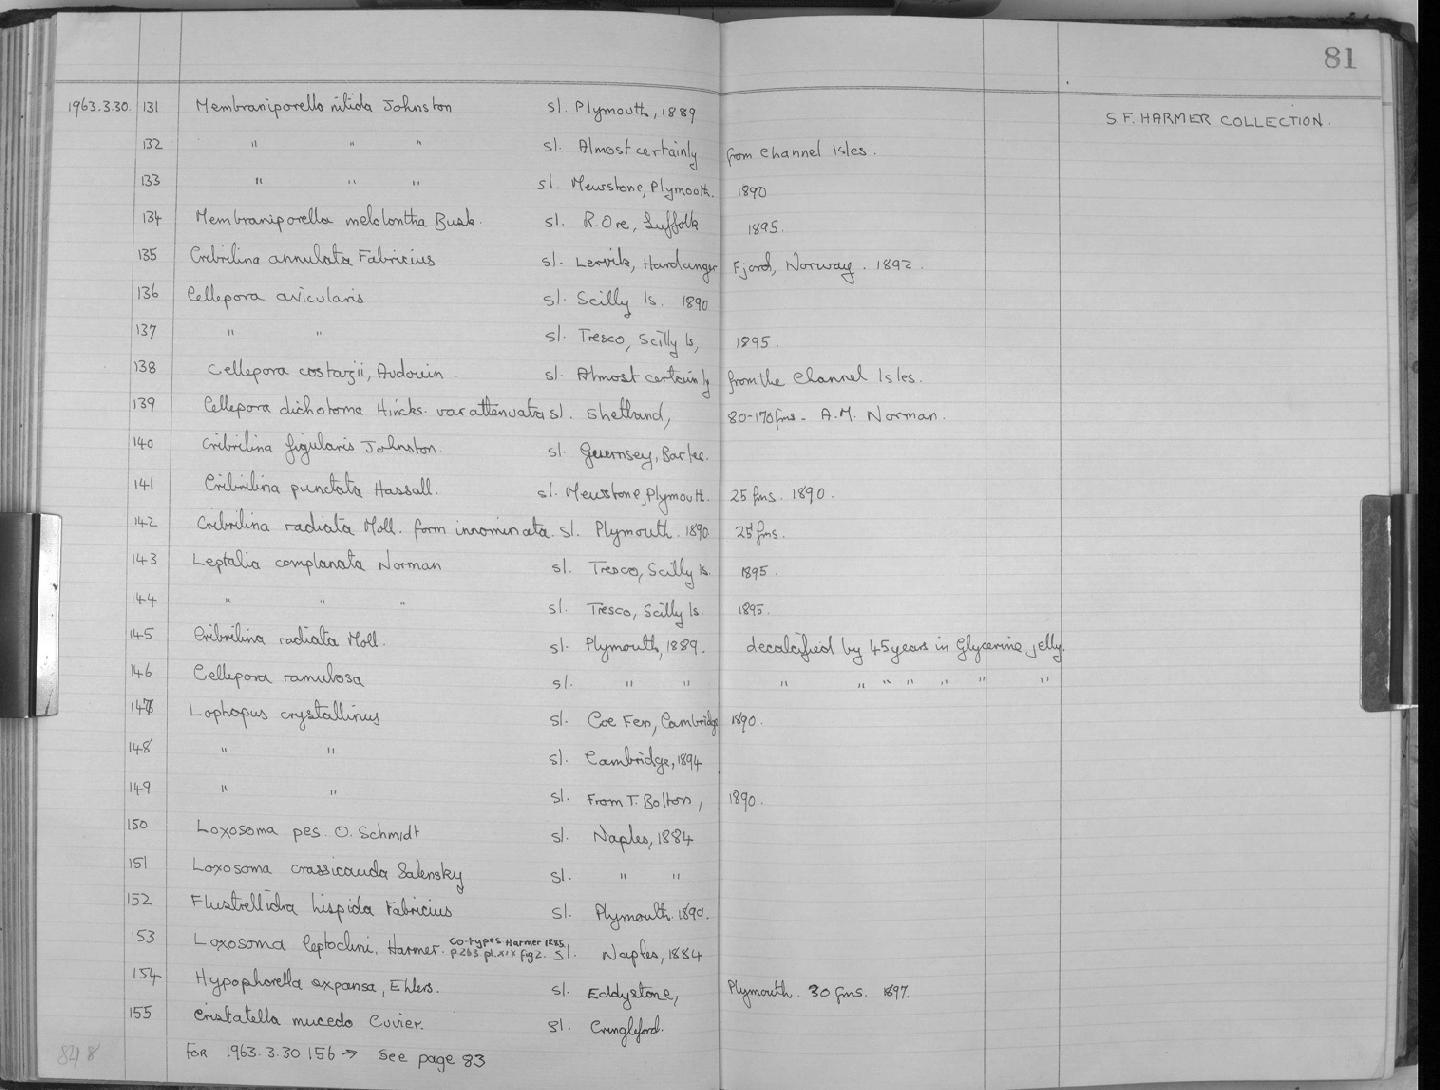 81
1963.3.30. 131 Membraniporella nitida Johnston sl. Plymouth, 1889 S.F. HARMER COLLECTION.
132 " " " sl. Almost certainly from Channel Isles.
133 " " " sl. Mewstone, Plymouth. 1890
134 Membraniporella melolontha Busk. sl. R. Ore, Suffolk 1895.
135 Cribrilina annulata Fabricius sl. Lervik, Hardanger Fjord, Norway. 1892.
136 Cellepora avicularis sl. Scilly Is. 1890
137 " " sl. Tresco, Scilly Is, 1895.
138 Cellepora costazii, Audouin sl. Almost certainly from the Channel Isles.
139 Cellepora dichotoma Hincks. var attenuata sl. Shetland, 80-170 fms - A.M. Norman.
140 Cribrilina figularis Johnston. sl. Guernsey,
141 Cribrilina punctata Hassall. sl. Mewstone, Plymouth. 25 fms. 1890.
142 Cribrilina radiata Moll. form innominata. sl. Plymouth. 1890 25 fms.
143 Leptalia complanata Norman sl. Tresco, Scilly Is. 1895.
44 " " " sl. Tresco, Scilly Is 1895.
145 Cribrilina radiata Moll. sl. Plymouth, 1889. decalcified by 45 years in Glycerine jelly.
146 Cellepora ramulosa sl. " " " " " " " " "
147 Lophopus crystallinus sl. Coe Fen, Cambridge 1890.
148 " " sl. Cambridge, 1894
149 " " sl. From T. Bolton, 1890.
150 Loxosoma pes. O. Schmidt sl. Naples, 1884
151 Loxosoma crassicauda Salensky sl. " "
152 Flustrellidra hispida Fabricius sl. Plymouth. 1890.
53 Loxosoma leptoclini. Harmer. co-types Harmer 1885. p263 pl.xix fig 2. sl. Naples, 1884
154 Hypophorella expansa, Ehlers. sl. Eddystone, Plymouth. 30 fms. 1897.
155 Cristatella mucedo Cuvier. sl. Cringleford.
848 FOR .963.3.30 156 → See page 83